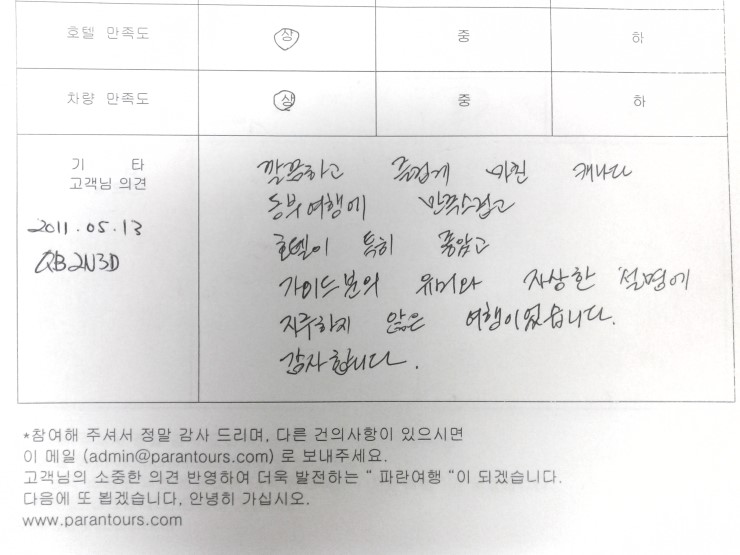 호텔 만족도 상 중 하
차량 만족도 상 중 하
기 타
고객님 의견
2011.05.13
QB2N3D
깔끔하고 즐겁게 마친 캐나다
동부여행에 만족스럽고
호텔이 특히 좋았고
가이드분의 유머와 자상한 설명에
지루하지 않은 여행이었습니다.
감사합니다.
*참여해 주셔서 정말 감사 드리며, 다른 건의사항이 있으시면
이 메일 (admin@parantours.com) 로 보내주세요.
고객님의 소중한 의견 반영하여 더욱 발전하는 “ 파란여행 “이 되겠습니다.
다음에 또 뵙겠습니다, 안녕히 가십시오.
www.parantours.com